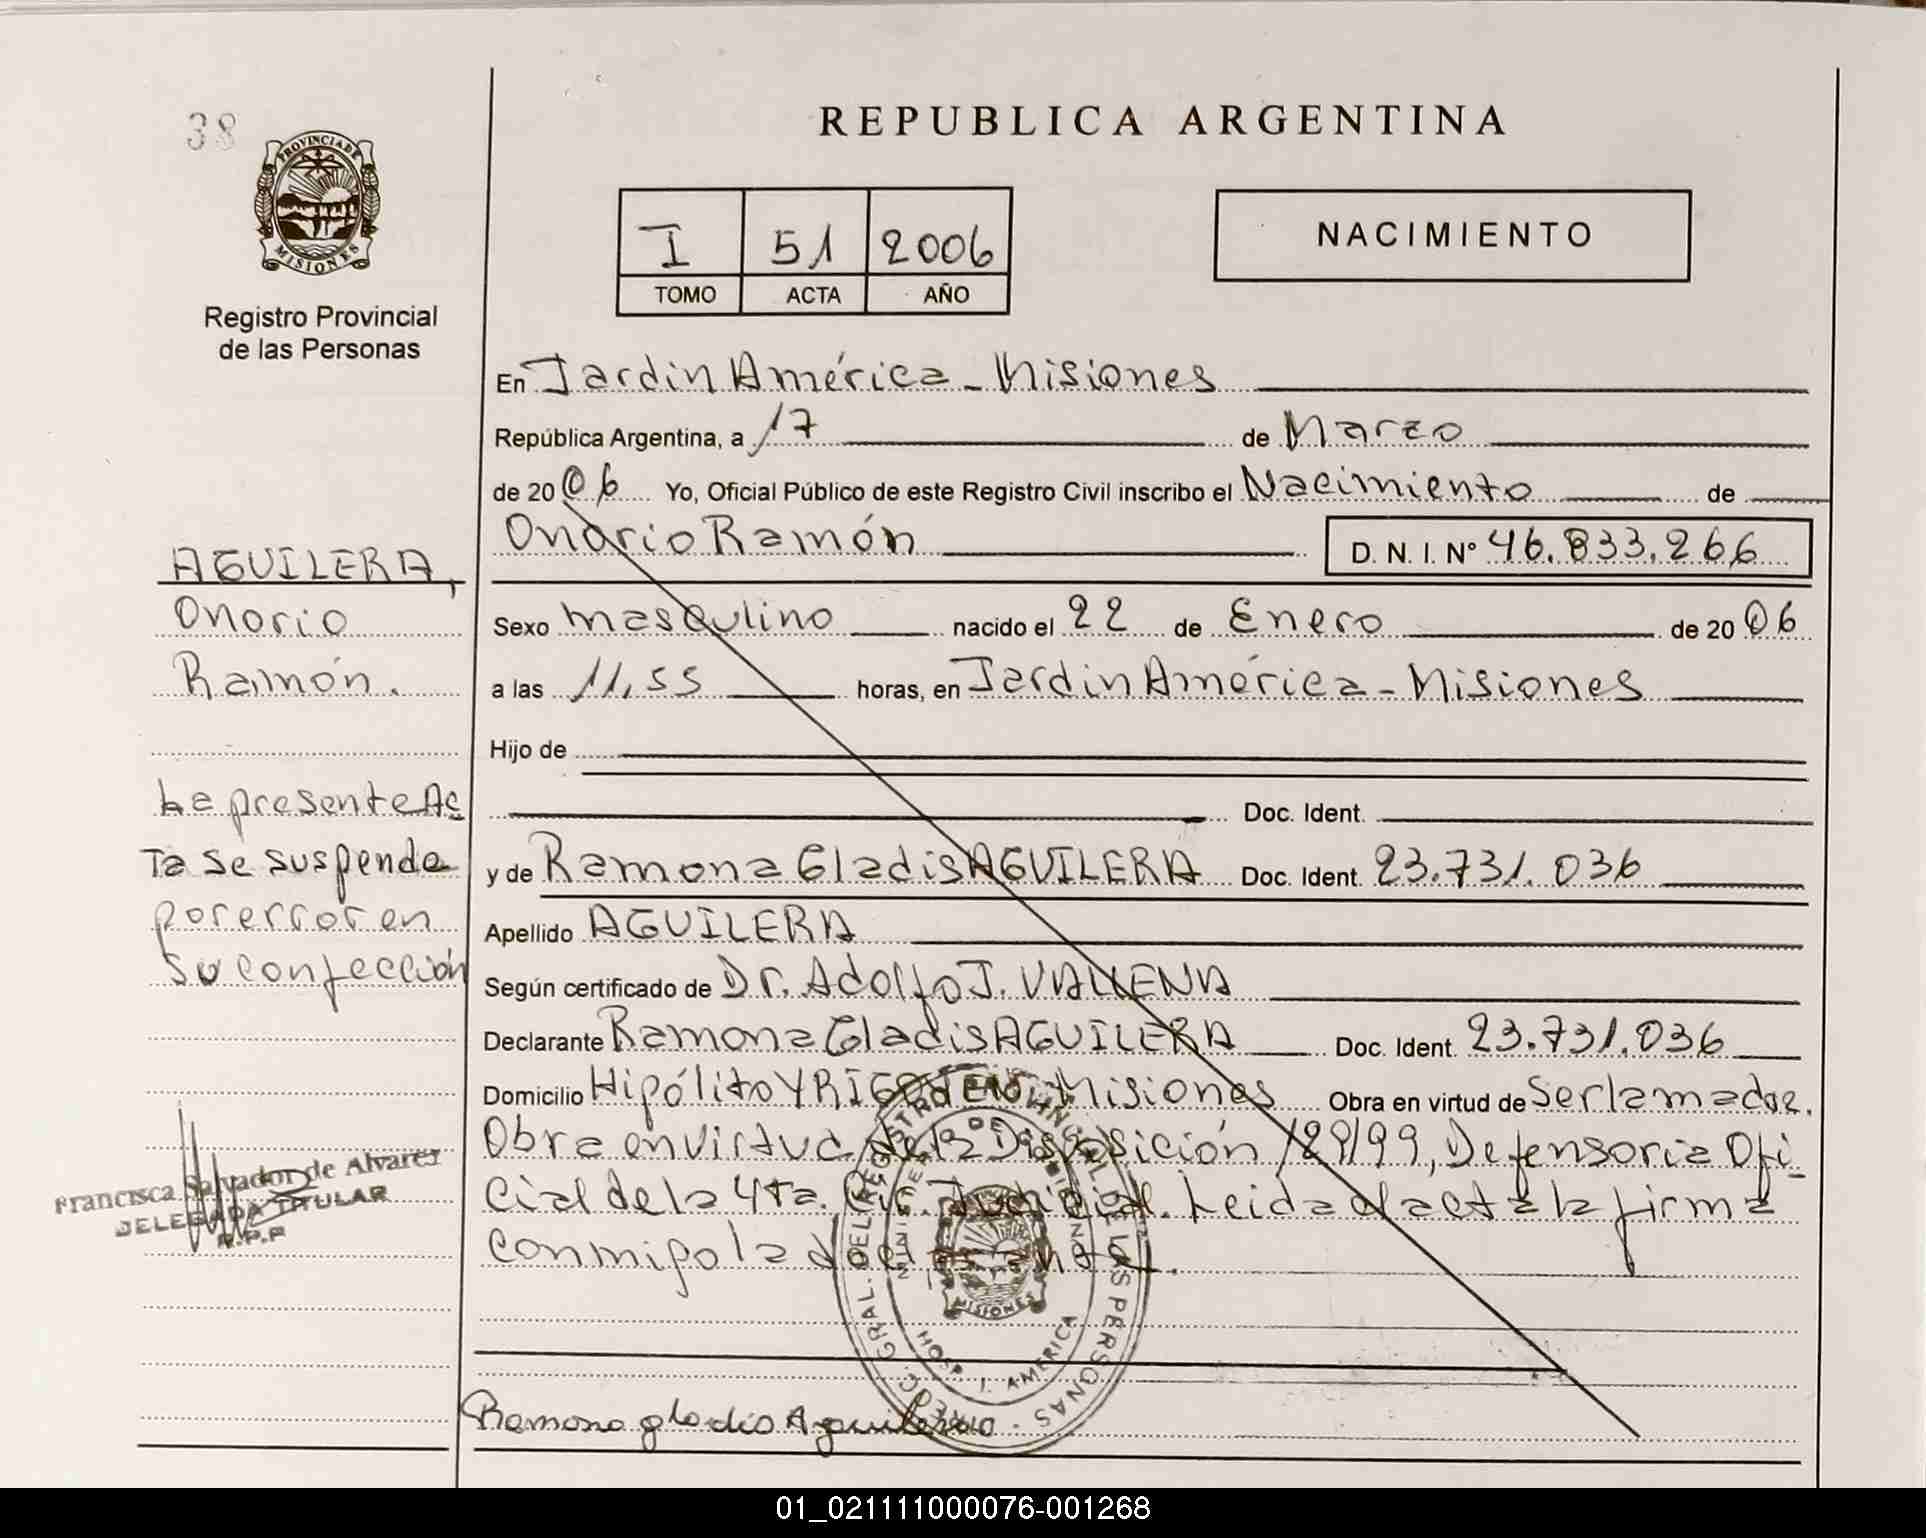 38
PROVINCIA DE
MISIONES
Registro Provincial
de las Personas
REPUBLICA ARGENTINA
I 51 2006
TOMO ACTA AÑO
NACIMIENTO
En Jardin América - Misiones
República Argentina, a 17 de Marzo
de 2006 Yo, Oficial Público de este Registro Civil inscribo el Nacimiento de
Onorio Ramón D. N. I. Nº 46.833.266
Sexo masculino nacido el 22 de Enero de 2006
a las 11,55 horas, en Jardin América - Misiones
Hijo de
Doc. Ident.
y de Ramona Gladis AGUILERA Doc. Ident. 23.731.036
Apellido AGUILERA
Según certificado de Dr. Adolfo J.
Declarante Ramona Gladis AGUILERA Doc. Ident. 23.731.036
Domicilio Hipólito YRIGOYEN, Misiones Obra en virtud de Ser la madre.
Obra en virtud de la Disposición 129/99, Defensoria Ofi-
cial de la 4ta. Cir. Judicial. Leida el acta la firma
conmigo la declarante.
Ramona gladis Aguilera
AGUILERA,
Onorio
Ramón.
La presente Ac
ta se suspende
por error en
su confección
Francisca Salvador de Alvarez
DELEGADA TITULAR
R.P.P
DIREC. GRAL. DEL REGISTRO PROVINCIAL DE LAS PERSONAS
MISIONES
HOSP. J. AMERICA
01_021111000076-001268